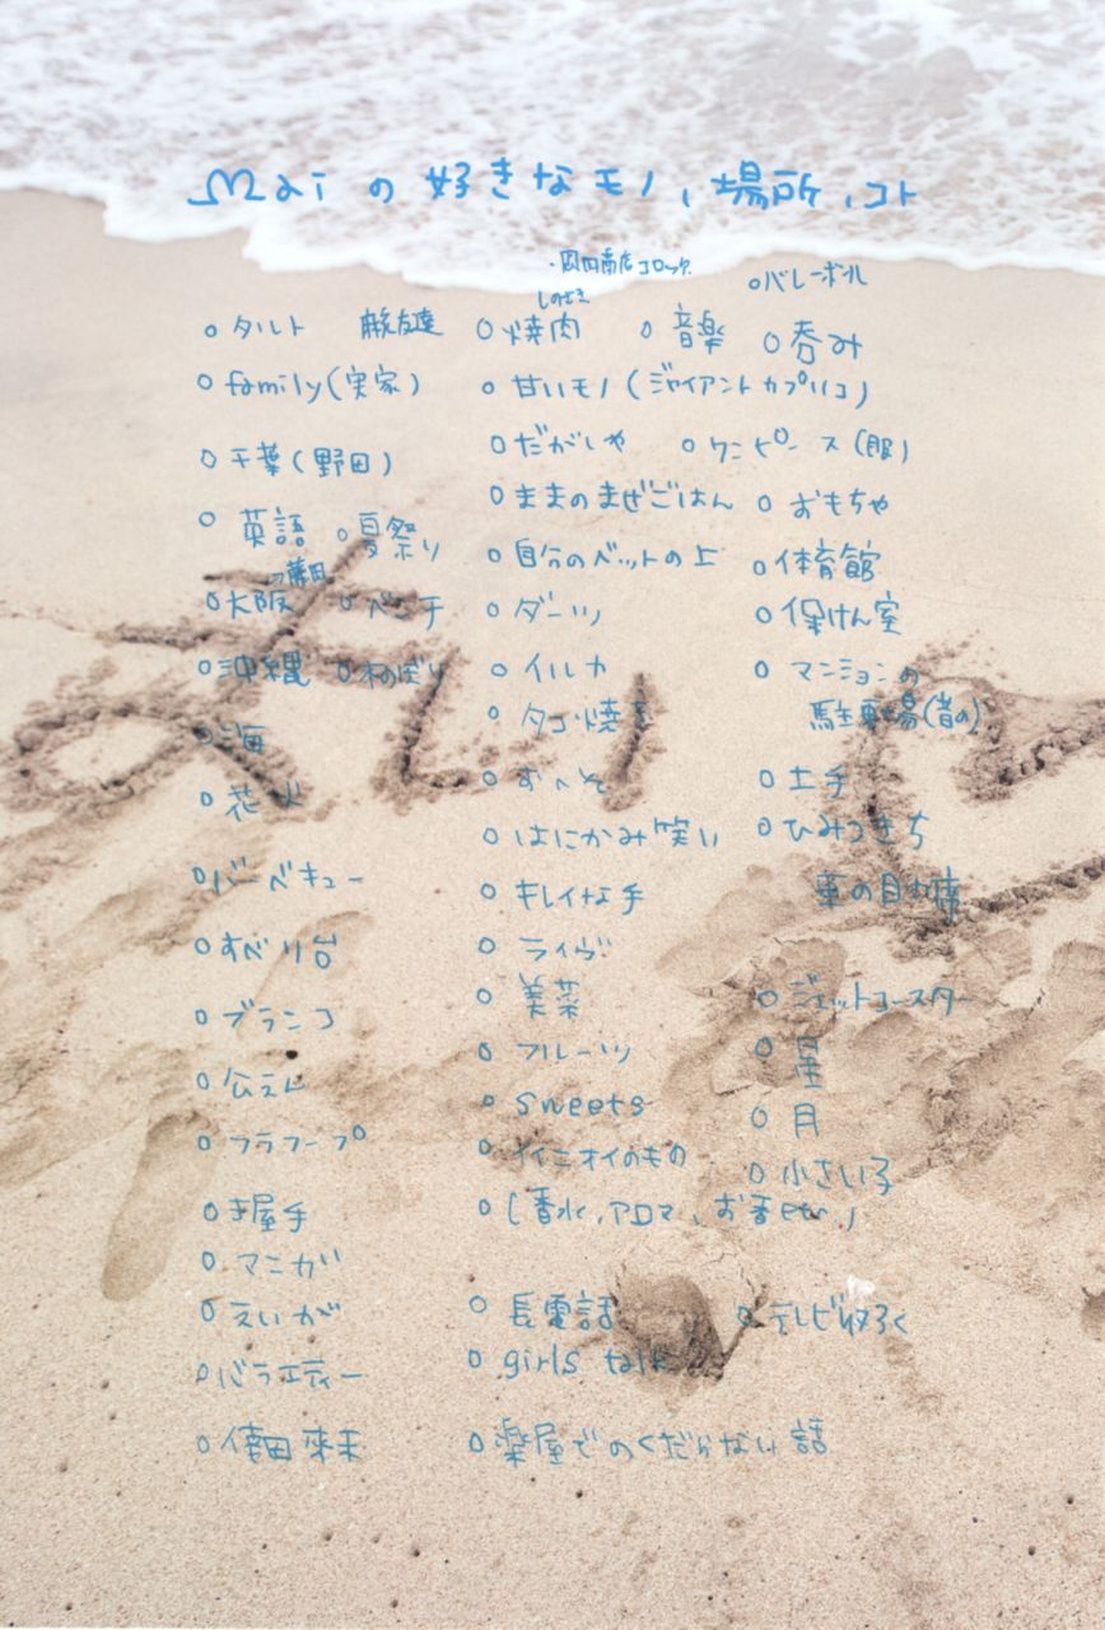 Maiの好きなモノ、場所、コト
・岡田商店コロッケ
○バレーボール
○タルト
○焼肉
○音楽
○呑み
○family(実家)
○甘いモノ(ジャイアントカプリコ)
○千葉(野田)
○だがしや
○ワンピース(服)
○ままのまぜごはん
○おもちゃ
○英語
○夏祭り
○自分のベットの上
○体育館
○大阪
○ベンチ
○ダーツ
○保けん室
○沖縄
○木のぼり
○イルカ
○マンションの
駐車場(昔の)
○海
○タコ焼き
○花火
○おへそ
○土手
○はにかみ笑い
○ひみつきち
○バーベキュー
○キレイな手
車の
○すべり台
○ライヴ
○ブランコ
○美菜
○ジェットコースター
○フルーツ
○星
○公えん
○sweets
○月
○フラフープ
○イイニオイのもの
○小さい子
○(香水、アロマ、お香etc.)
○マンガ
○えいが
○長電話
○テレビ収ろく
○バラエティー
○girls talk
○倖田來未
○楽屋でのくだらない話
あい